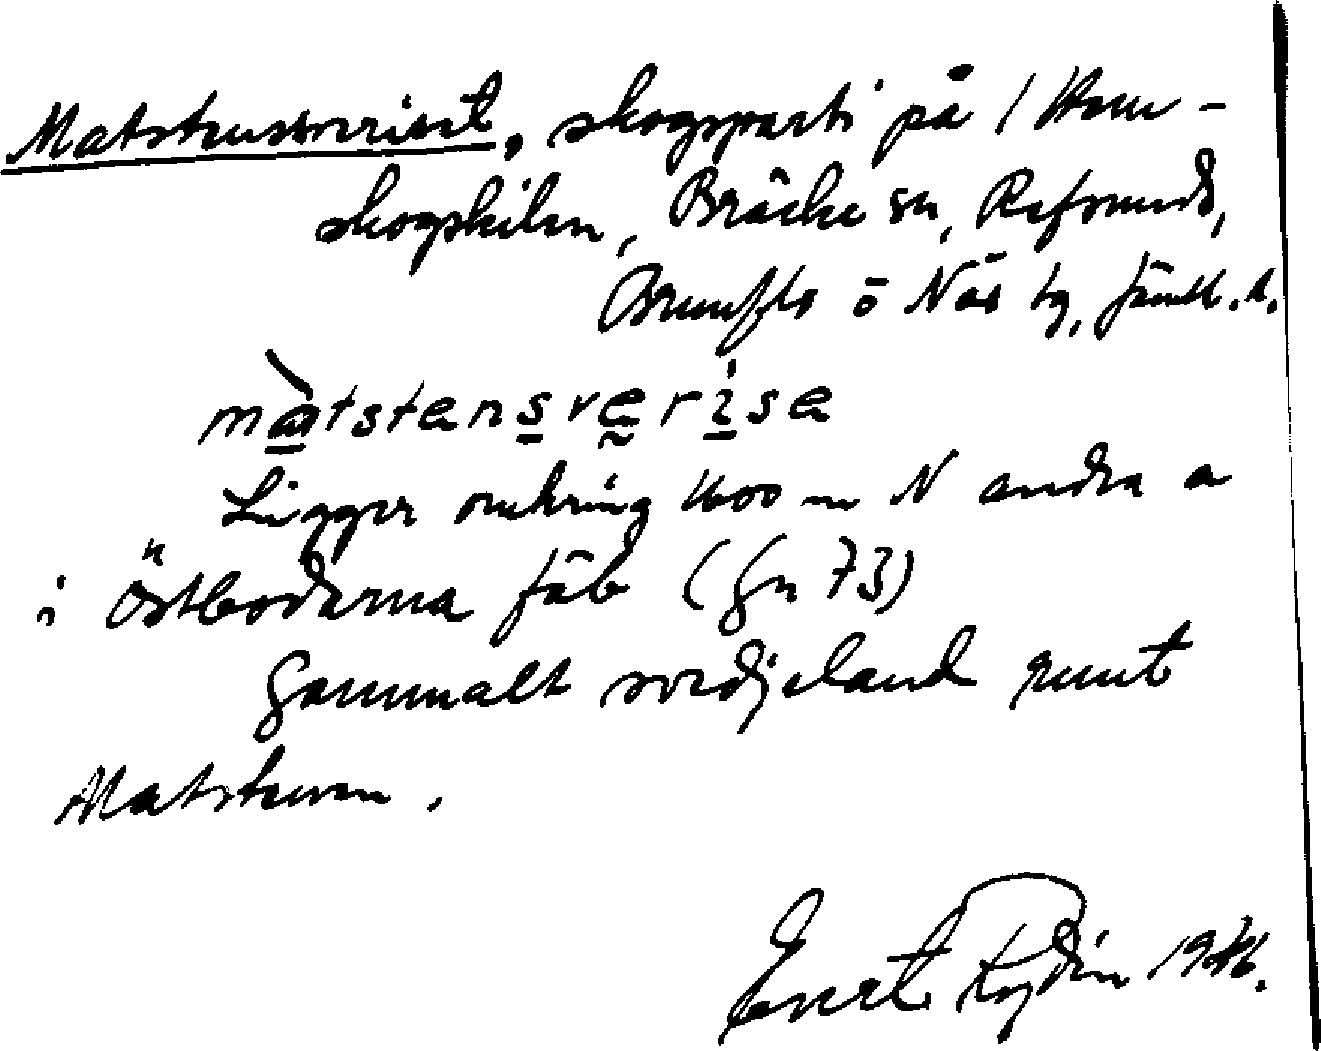 Matstensveriset, skogsparti på 1 Hem-
skogskilen, Bräcke sn, Refsunds,
Brunflo o Näs tg, Jämtl. l.
màtstensverise
Ligger omkring 1600 m N andra a
i Östbodarna fäb (Gn 73)
Gammalt svedjeland runt
Matstenen.
Evert Rydin 1946.